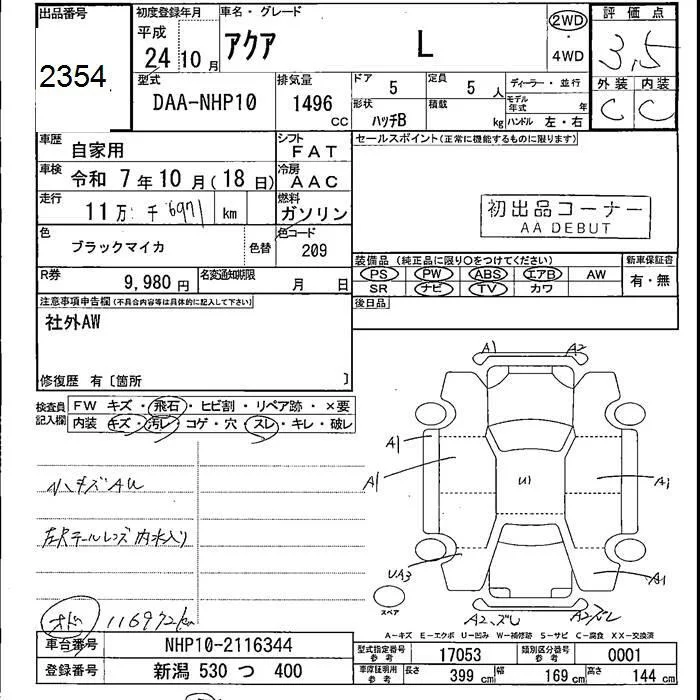 出品番号
2354
初度登録年月
平成
24年10月
車名・グレード
アクア L
2WD
・
4WD
評価点
3.5
外装 内装
C C
型式
DAA-NHP10
排気量
1496 cc
ドア 5
定員 5 人
ディーラー・並行
形状 ハッチB
積載 kg
モデル年式 年
ハンドル 左・右
車歴 自家用
シフト FAT
車検 令和 7年10月(18日)
冷房 AAC
走行 11万 千 6971 km
燃料 ガソリン
色 ブラックマイカ
色替
色コード 209
R券 9,980円
名変通知期限 月 日
セールスポイント(正常に機能するものに限ります)
初出品コーナー
AA DEBUT
装備品 (純正品に限り○をつけてください)
新車保証書
PS PW ABS エアB AW
有・無
SR ナビ TV カワ
後日品
注意事項申告欄(不具合内容等は具体的に記入して下さい)
社外AW
修復歴 有〔箇所 〕
検査員記入欄
FW キズ・飛石・ヒビ割・リペア跡・×要
内装 キズ・汚レ・コゲ・穴・スレ・キレ・破レ
小キズAW
左Rテールレンズ内水入り
116972km
A1 A2
A1
A1 U1 A1
UA3 A1
スペア
A2、ズレ A2・ズレ
A-キズ E-エクボ U-凹み W-補修跡 S-サビ C-腐食 XX-交換済
車台番号 NHP10-2116344
登録番号 新潟 530 つ 400
型式指定番号 参考 17053
類別区分番号 参考 0001
車庫証明用 参考 長さ 399 cm 幅 169 cm 高さ 144 cm